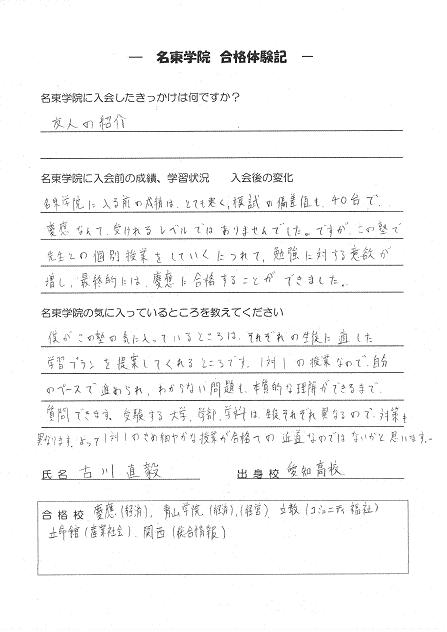 ― 名東学院 合格体験記 ―
名東学院に入会したきっかけは何ですか？
友人の紹介
名東学院に入会前の成績、学習状況 入会後の変化
名東学院に入る前の成績は、とても悪く、模試の偏差値も40台で、
慶應なんて、受けれるレベルではありませんでした。ですが、この塾で
先生との個別授業をしていくにつれて、勉強に対する意欲が
増し、最終的には、慶應に合格することができました。
名東学院の気に入っているところを教えてください
僕がこの塾の気に入っているところは、それぞれの生徒に適した
学習プランを提案してくれるところです。1対1の授業なので、自分
のペースで進められ、わからない問題も、本質的な理解ができるまで、
質問できます。受験する大学、学部、学科は、生徒それぞれ異なるので、対策も
異なります。よって1対1のきめ細やかな授業が合格への近道なのではないかと思います。
氏名 古川 直毅 出身校 愛知高校
合格校 慶應(経済)、青山学院(経済)、(経営) 立教(コミュニティ福祉)
立命館(産業社会) 関西(総合情報)